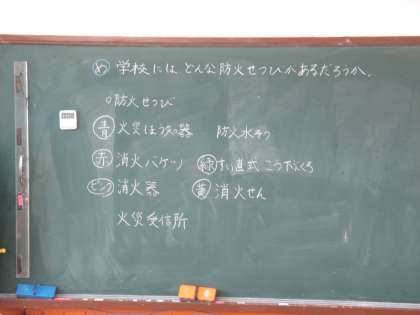 め 学校には どんな防火せつびがあるだろうか。
○防火せつび
青 火災ほうち器 防火水そう
赤 消火バケツ 緑 すい直式こう下ぶくろ
ピンク 消火器 黄 消火せん
火災受信所